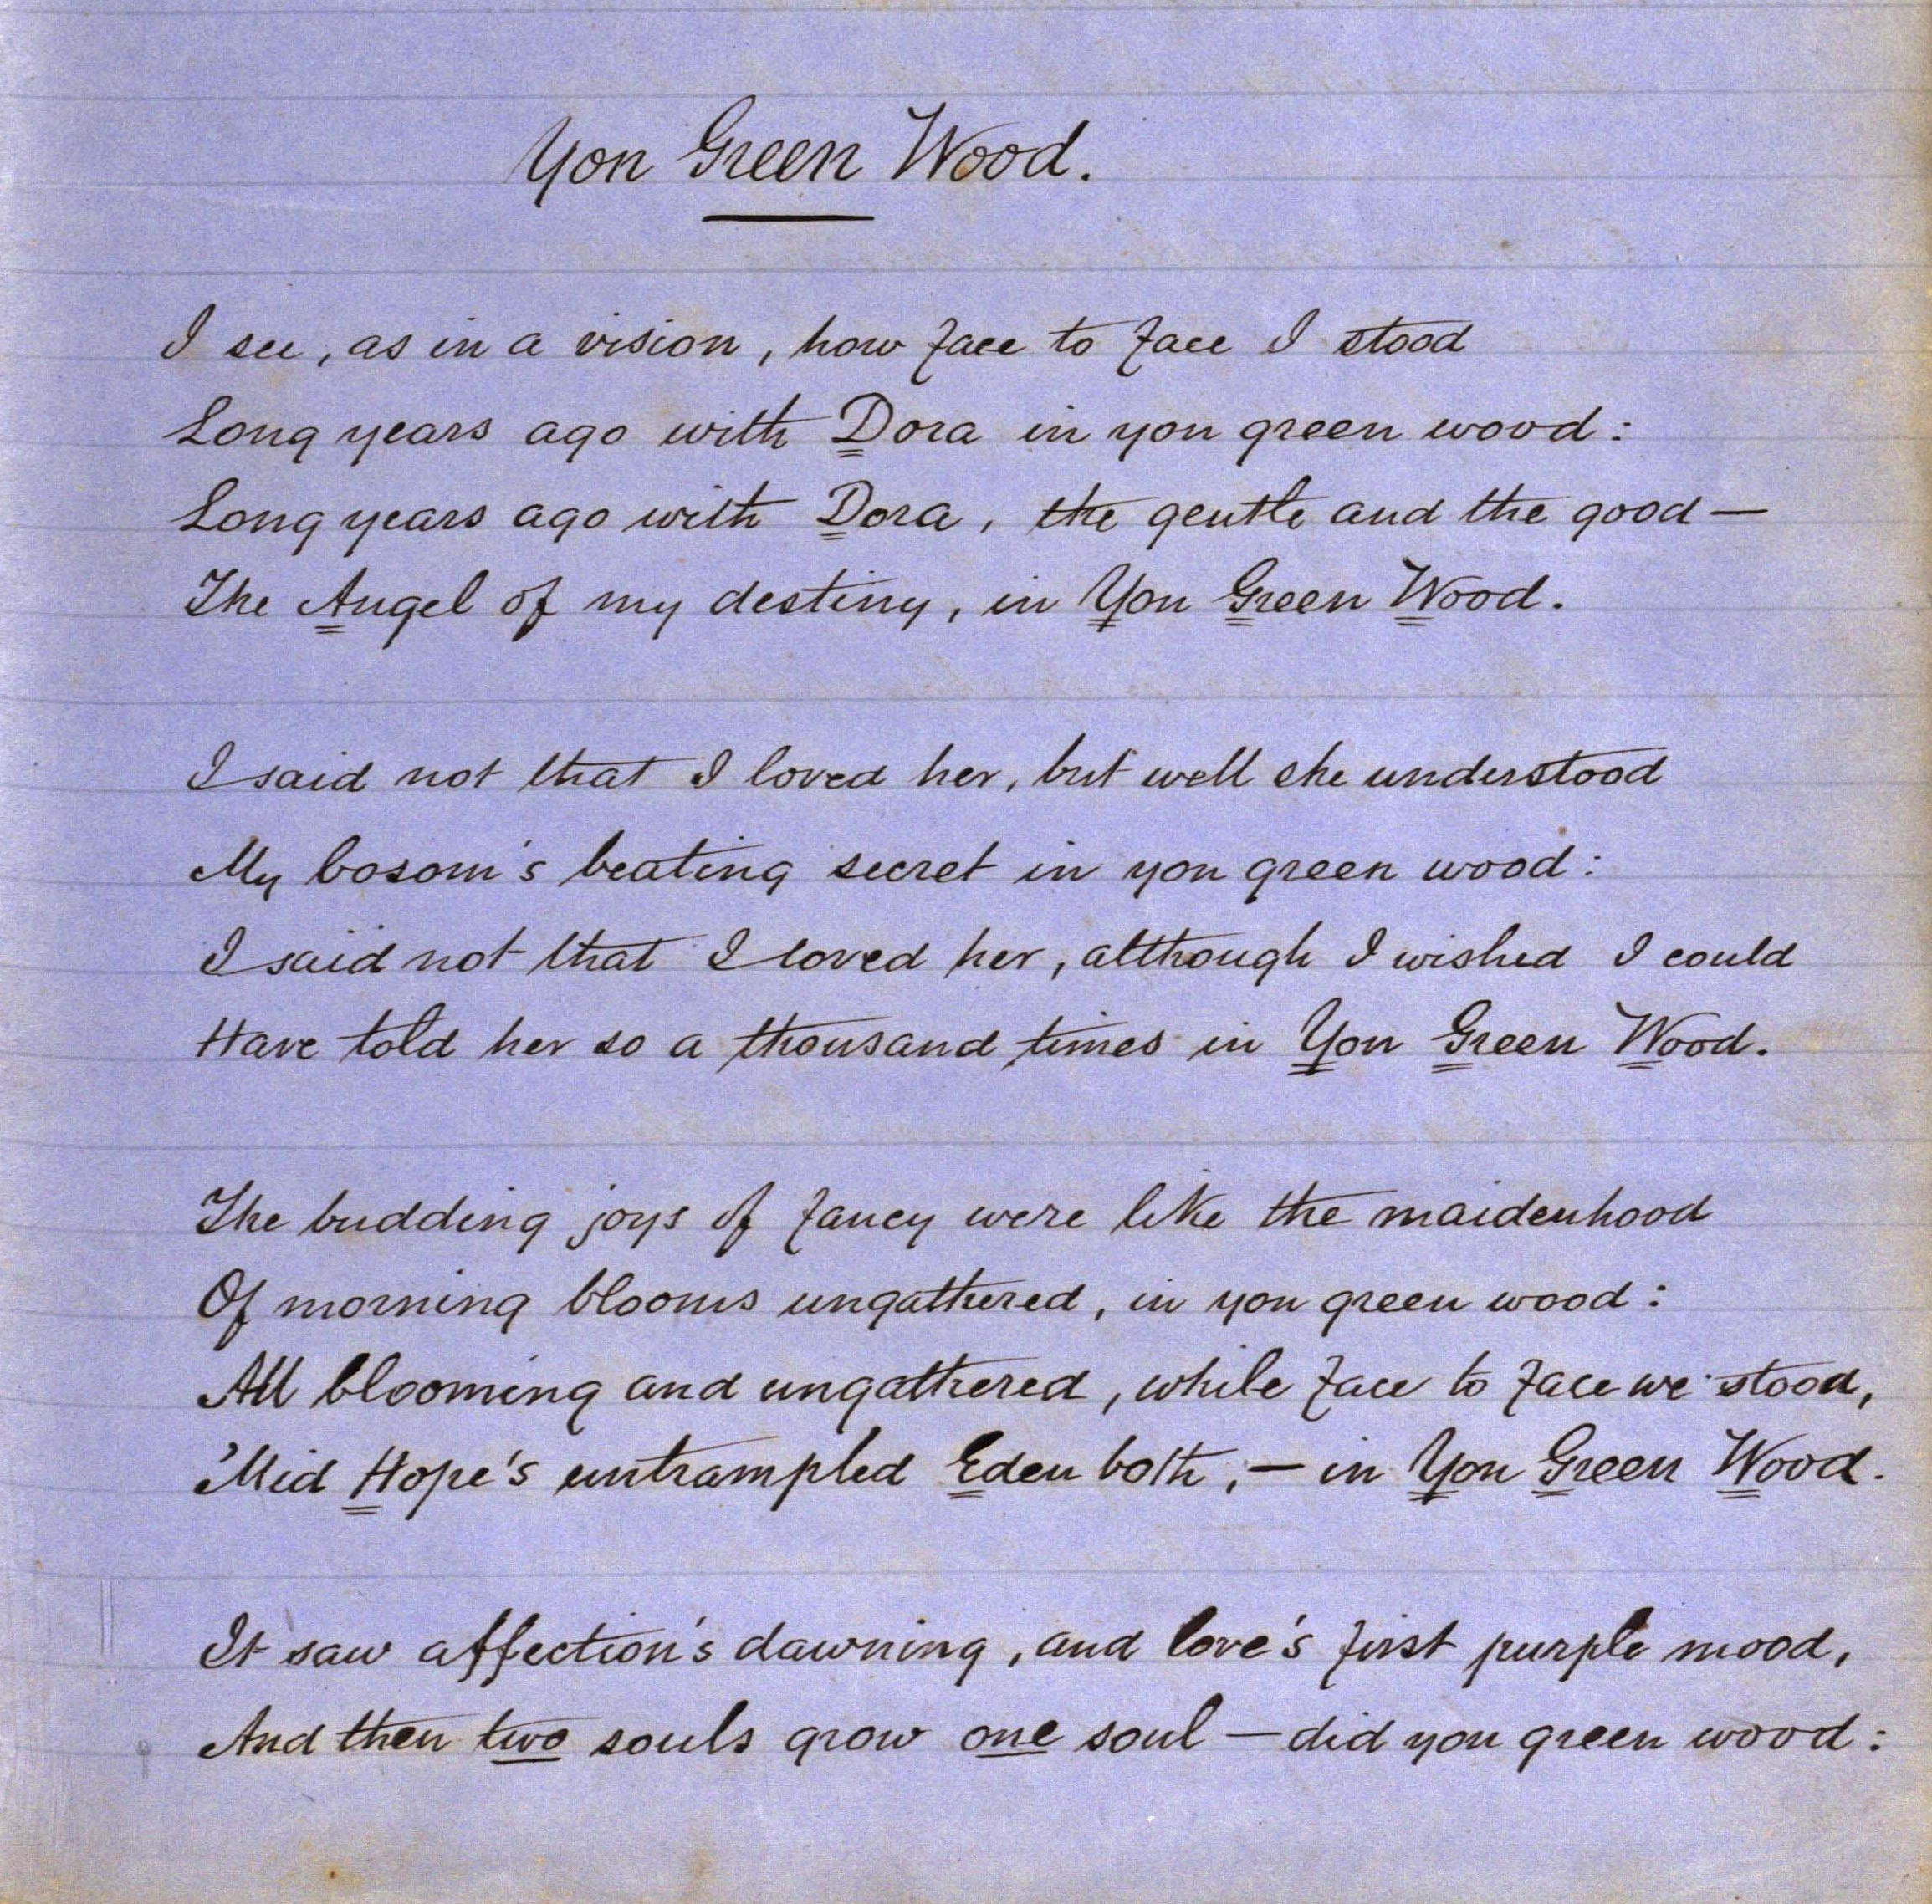 Yon Green Wood.
I see, as in a vision, how face to face I stood
Long years ago with Dora in yon green wood:
Long years ago with Dora, the gentle and the good—
The Angel of my destiny, in Yon Green Wood.
I said not that I loved her, but well she understood
My bosom's beating secret in yon green wood:
I said not that I loved her, although I wished I could
Have told her so a thousand times in Yon Green Wood.
The budding joys of fancy were like the maidenhood
Of morning blooms ungathered, in yon green wood:
All blooming and ungathered, while face to face we stood,
'Mid Hope's untrampled Eden both,— in Yon Green Wood.
It saw affection's dawning, and love's first purple mood,
And then two souls grow one soul—did yon green wood: